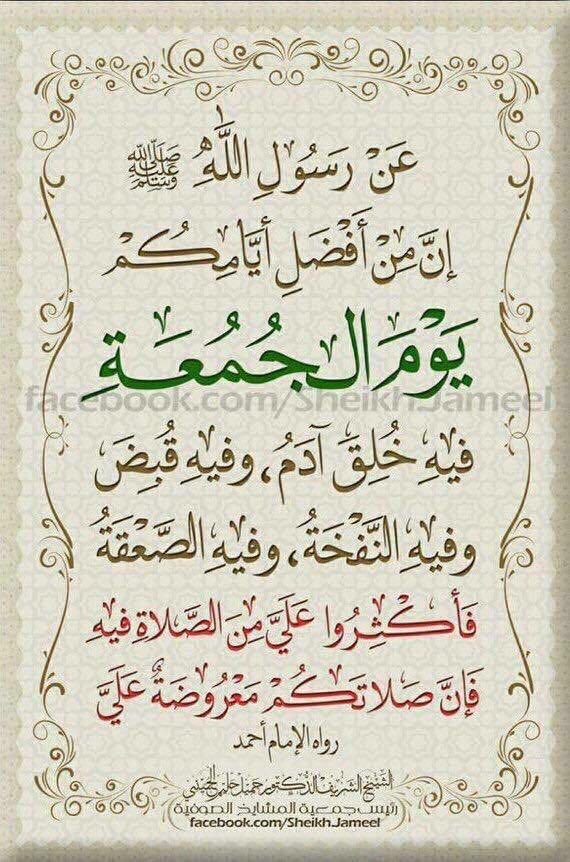 عَنْ رَسُولِ اللَّهِ ﷺ
إِنَّ مِنْ أَفْضَلِ أَيَّامِكُمْ
يَوْمَ الْجُمُعَةِ
facebook.com/Sheikh.Jameel
فِيهِ خُلِقَ آدَمُ، وَفِيهِ قُبِضَ
وَفِيهِ النَّفْخَةُ، وَفِيهِ الصَّعْقَةُ
فَأَكْثِرُوا عَلَيَّ مِنَ الصَّلَاةِ فِيهِ
فَإِنَّ صَلَاتَكُمْ مَعْرُوضَةٌ عَلَيَّ
رواه الإمام أحمد
الشيخ الشريف الدكتور جميل حليم الحسيني
رئيس جمعية المشايخ الصوفية
facebook.com/Sheikh.Jameel